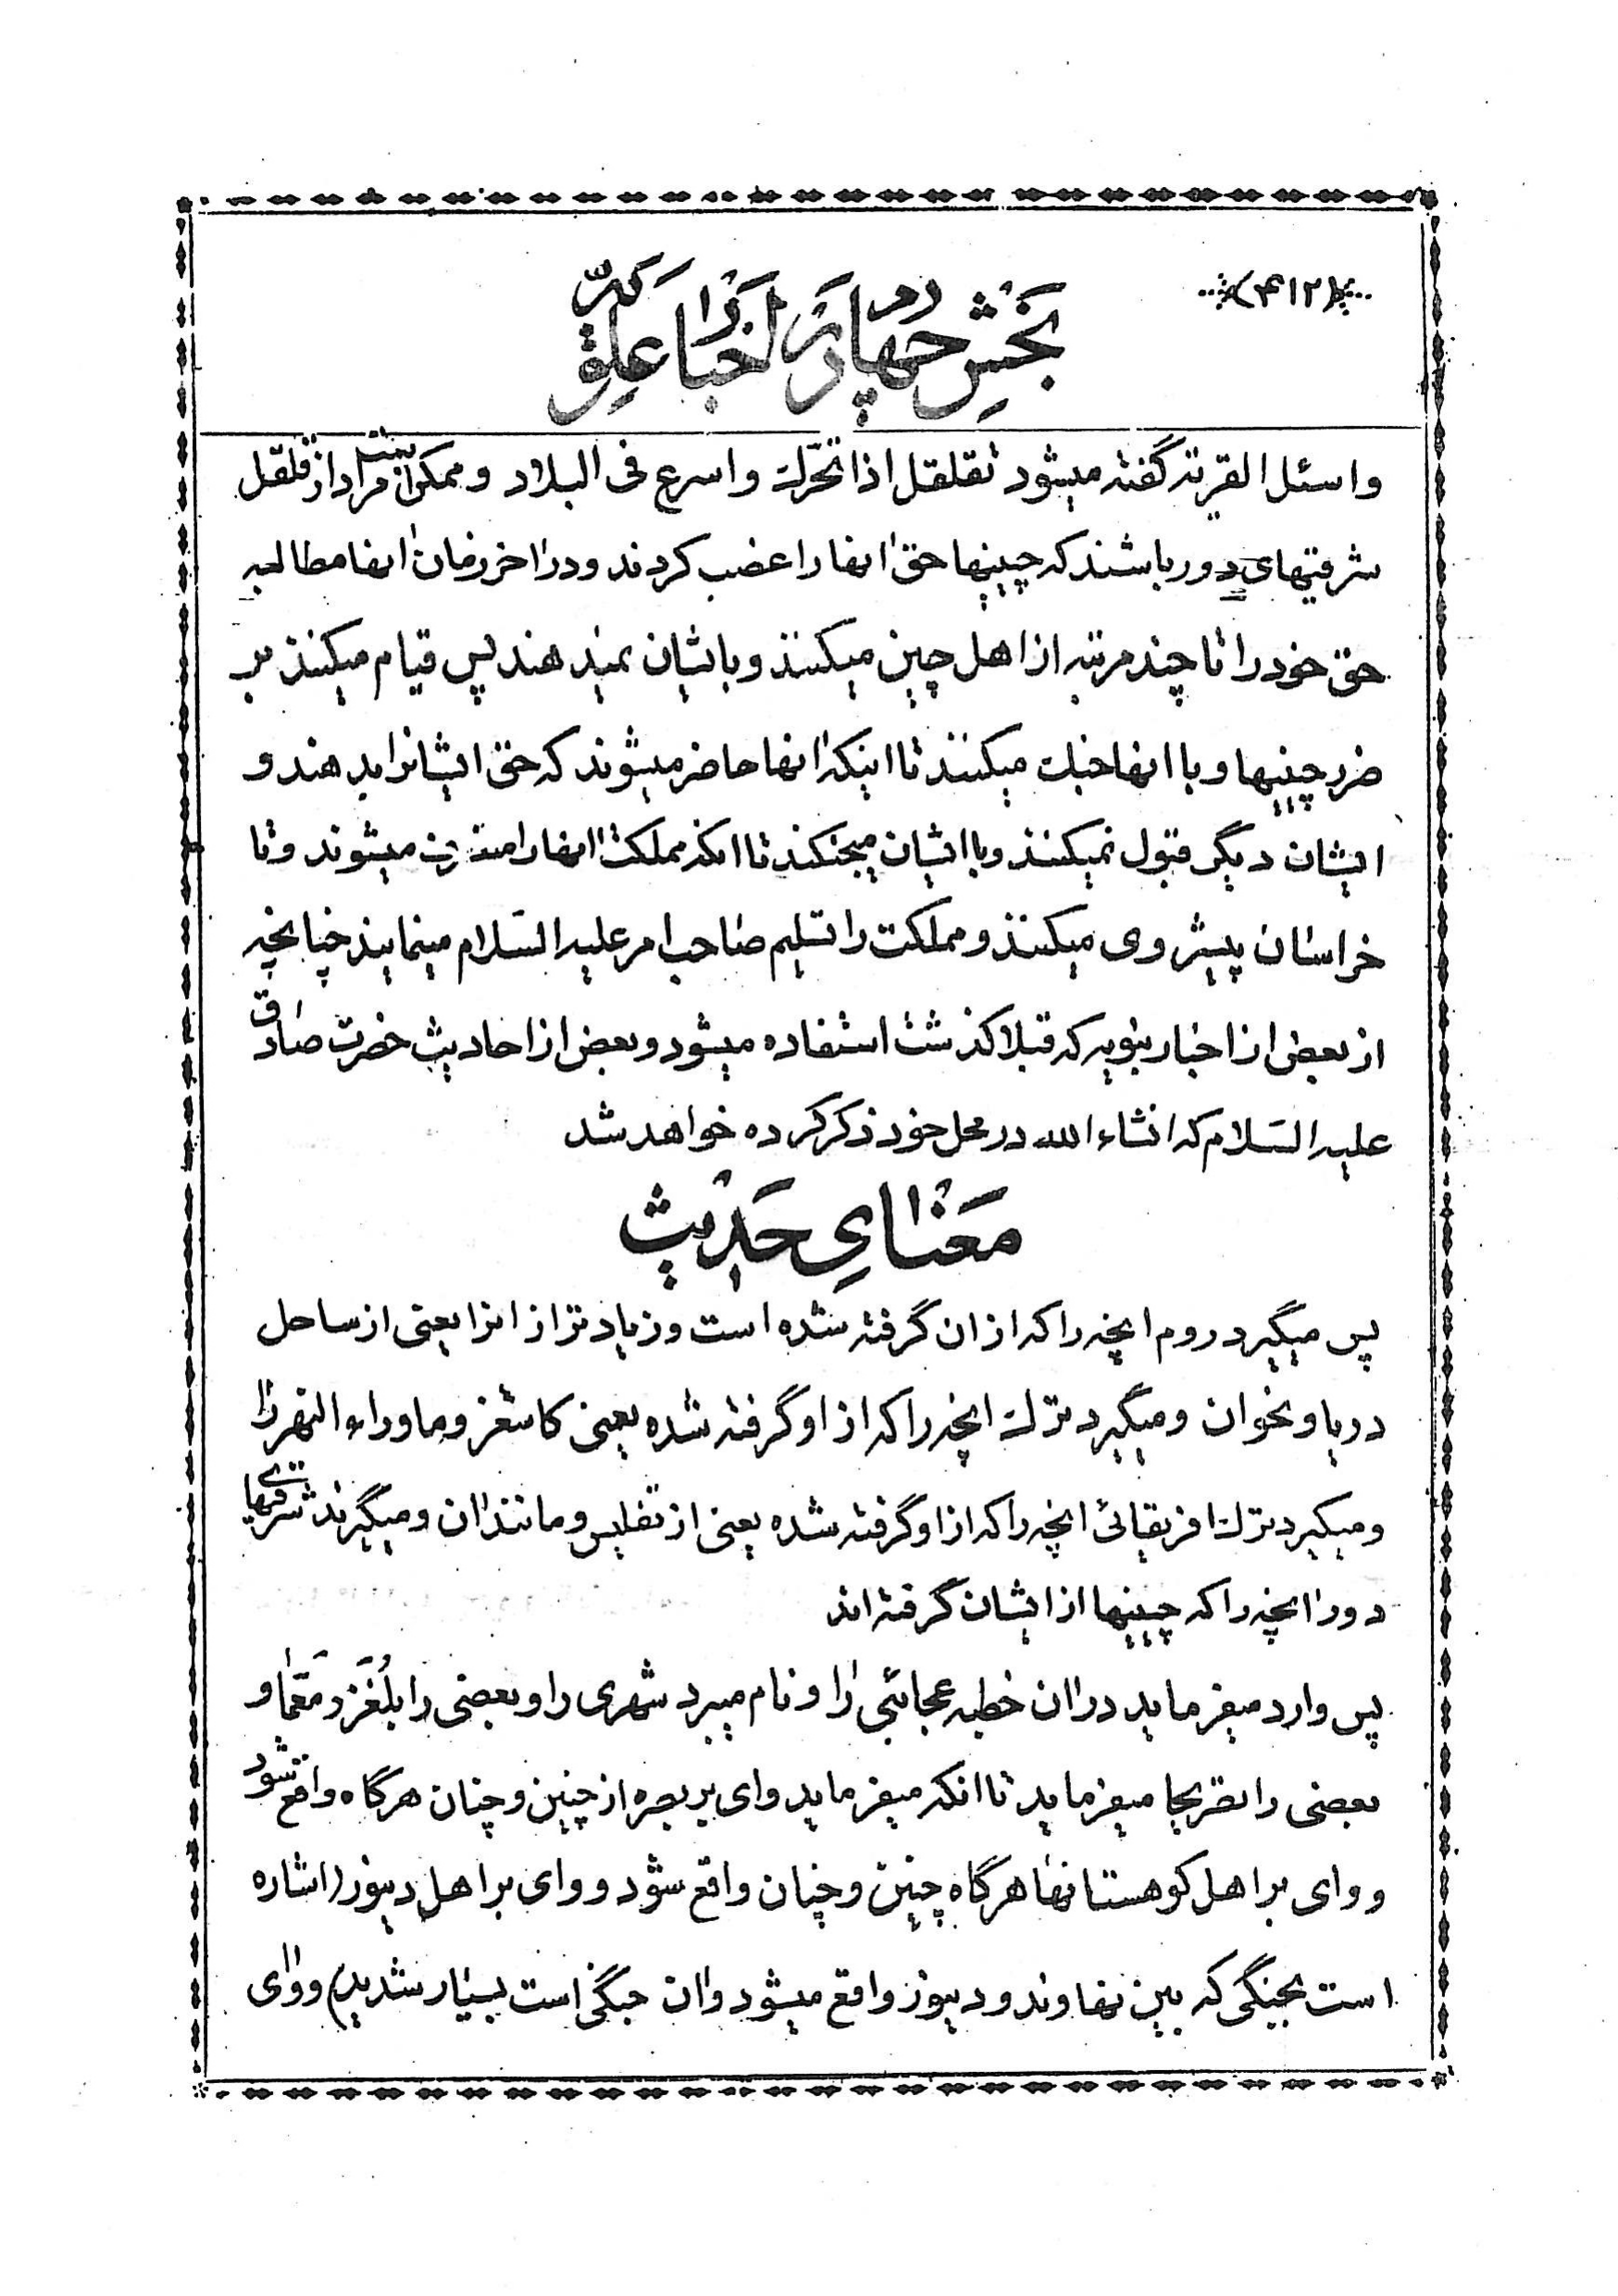 (۴۱۲)
بخش چهارم در اخبار علویّه
واسئل القریة گفته میشود تقلقل اذا تحرّك واسرع فی البلاد وممکن است مراد از قلقل
شرقیهای دور باشند که چینیها حق انها را غضب کردند ودر اخر زمان انها مطالبه
حق خود را تا چند مرتبه از اهل چین میکنند و بایشان نمیدهند پس قیام میکنند بر
ضرر چینیها و با انها جنك میکنند تا اینکه انها حاضر میشوند که حق ایشانرا بدهند و
ایشان دیگر قبول نمیکنند و با ایشان میجنکند تا انکه مملکت انها را متصرف میشوند و تا
خراسان پیشروی میکنند و مملکت را تسلیم صاحب امر علیه السّلام مینمایند چنانچه
از بعض از اخبار نبویه که قبلا کذشت استفاده میشود و بعض از احادیث حضرت صادق
علیه السّلام که انشاء الله در محل خود ذکر کرده خواهد شد
معنای حدیث
پس میگیرد روم انچه را که از ان گرفته شده است و زیادتر از انرا یعنی از ساحل
دریا و نخوان ومیگیرد ترك انچه را که از او گرفته شده یعنی کاشغر و ماوراء النهر را
ومیکیرد ترك افریقائی انچه را که از او گرفته شده یعنی از تفلیس و مانند ان و میگیرند شرقیهای
دور انچه را که چینیها از ایشان گرفته اند
پس وارد میفرماید در ان خطبه عجائبی را و نام میبرد شهری را و بعضی را بلُغَز و مَعَمّا و
بعضی را تصریحا میفرماید تا انکه میفرماید وای بر بصره از چنین و چنان هرگاه واقع شود
و وای بر اهل کوهستانها هرگاه چنین و چنان واقع شود و وای بر اهل دینور (اشاره
است بجنگی که بین نهاوند و دینور واقع میشود و ان جنگی است بسیار شدید) و وای